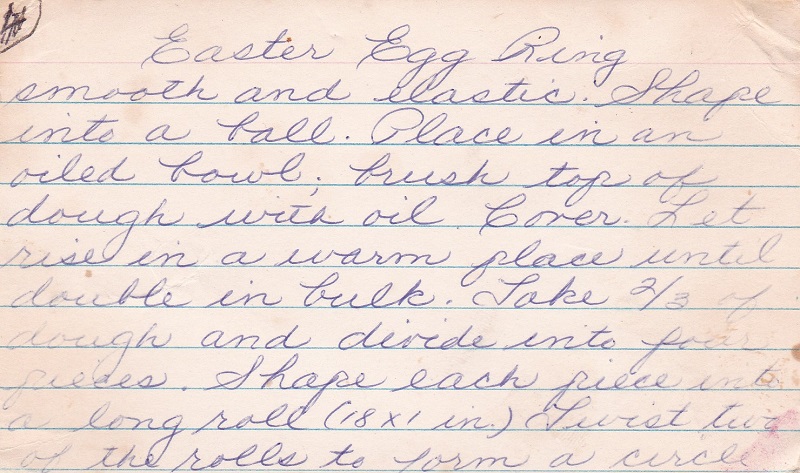 #
Easter Egg Ring
smooth and elastic. Shape
into a ball. Place in an
oiled bowl; brush top of
dough with oil. Cover. Let
rise in a warm place until
double in bulk. Take 2/3 of
dough and divide into four
pieces. Shape each piece into
a long roll (18 x 1 in.) Twist two
of the rolls to form a circle